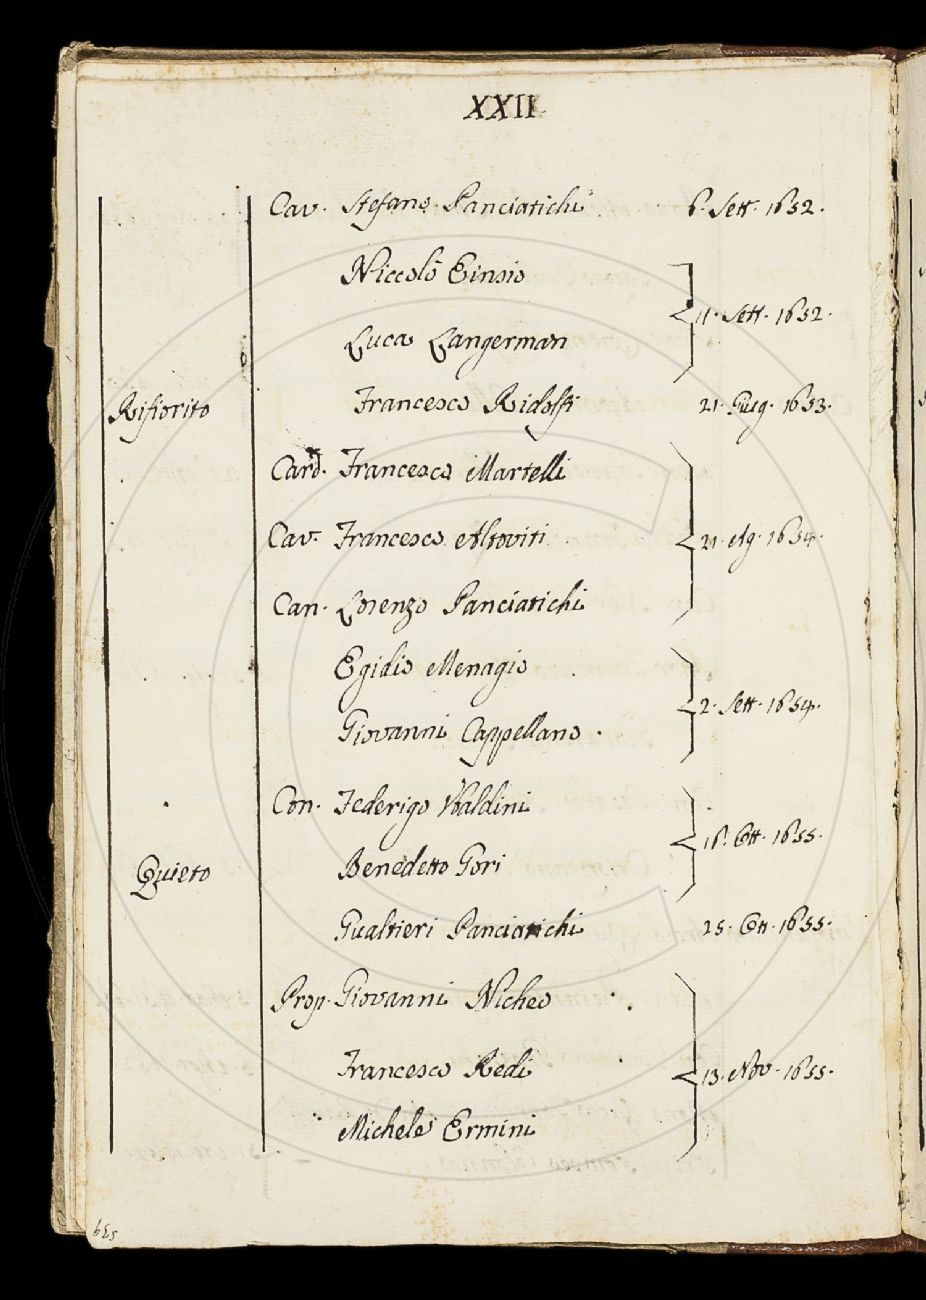 XXII
Cav. Stefano Panciatichi 6. Sett. 1652.
Niccolò Einsio
Luca Langerman
11. Sett. 1652.
Rifiorito
Francesco Ridolfi 21. Giug. 1653.
Card. Francesco Martelli
Cav. Francesco Altoviti
21. Ag. 1654.
Can. Lorenzo Panciatichi
Egidio Menagio
Giovanni Cappellano.
2. Sett. 1654.
Con. Federigo Ubaldini
Benedetto Gori
16. Ott. 1655.
Quieto
Gualtieri Panciatichi 25. Ott. 1655.
Prop. Giovanni Nicheo
Francesco Redi
13. Nov. 1655.
Michele Ermini